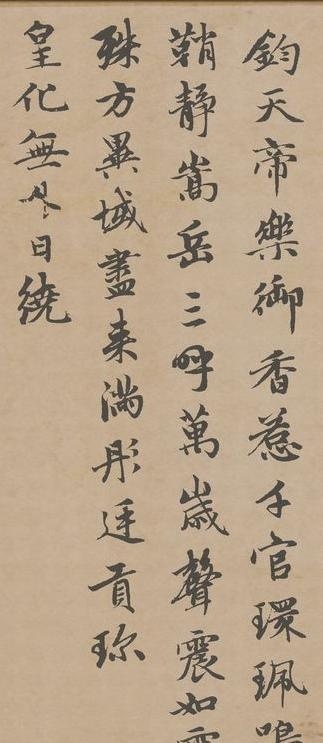 鈞天帝樂御香惹千官環珮鳴
鞘靜嵩岳三呼萬歲聲震如
殊方異域盡来滿彤庭貢珎
皇化無外日繞